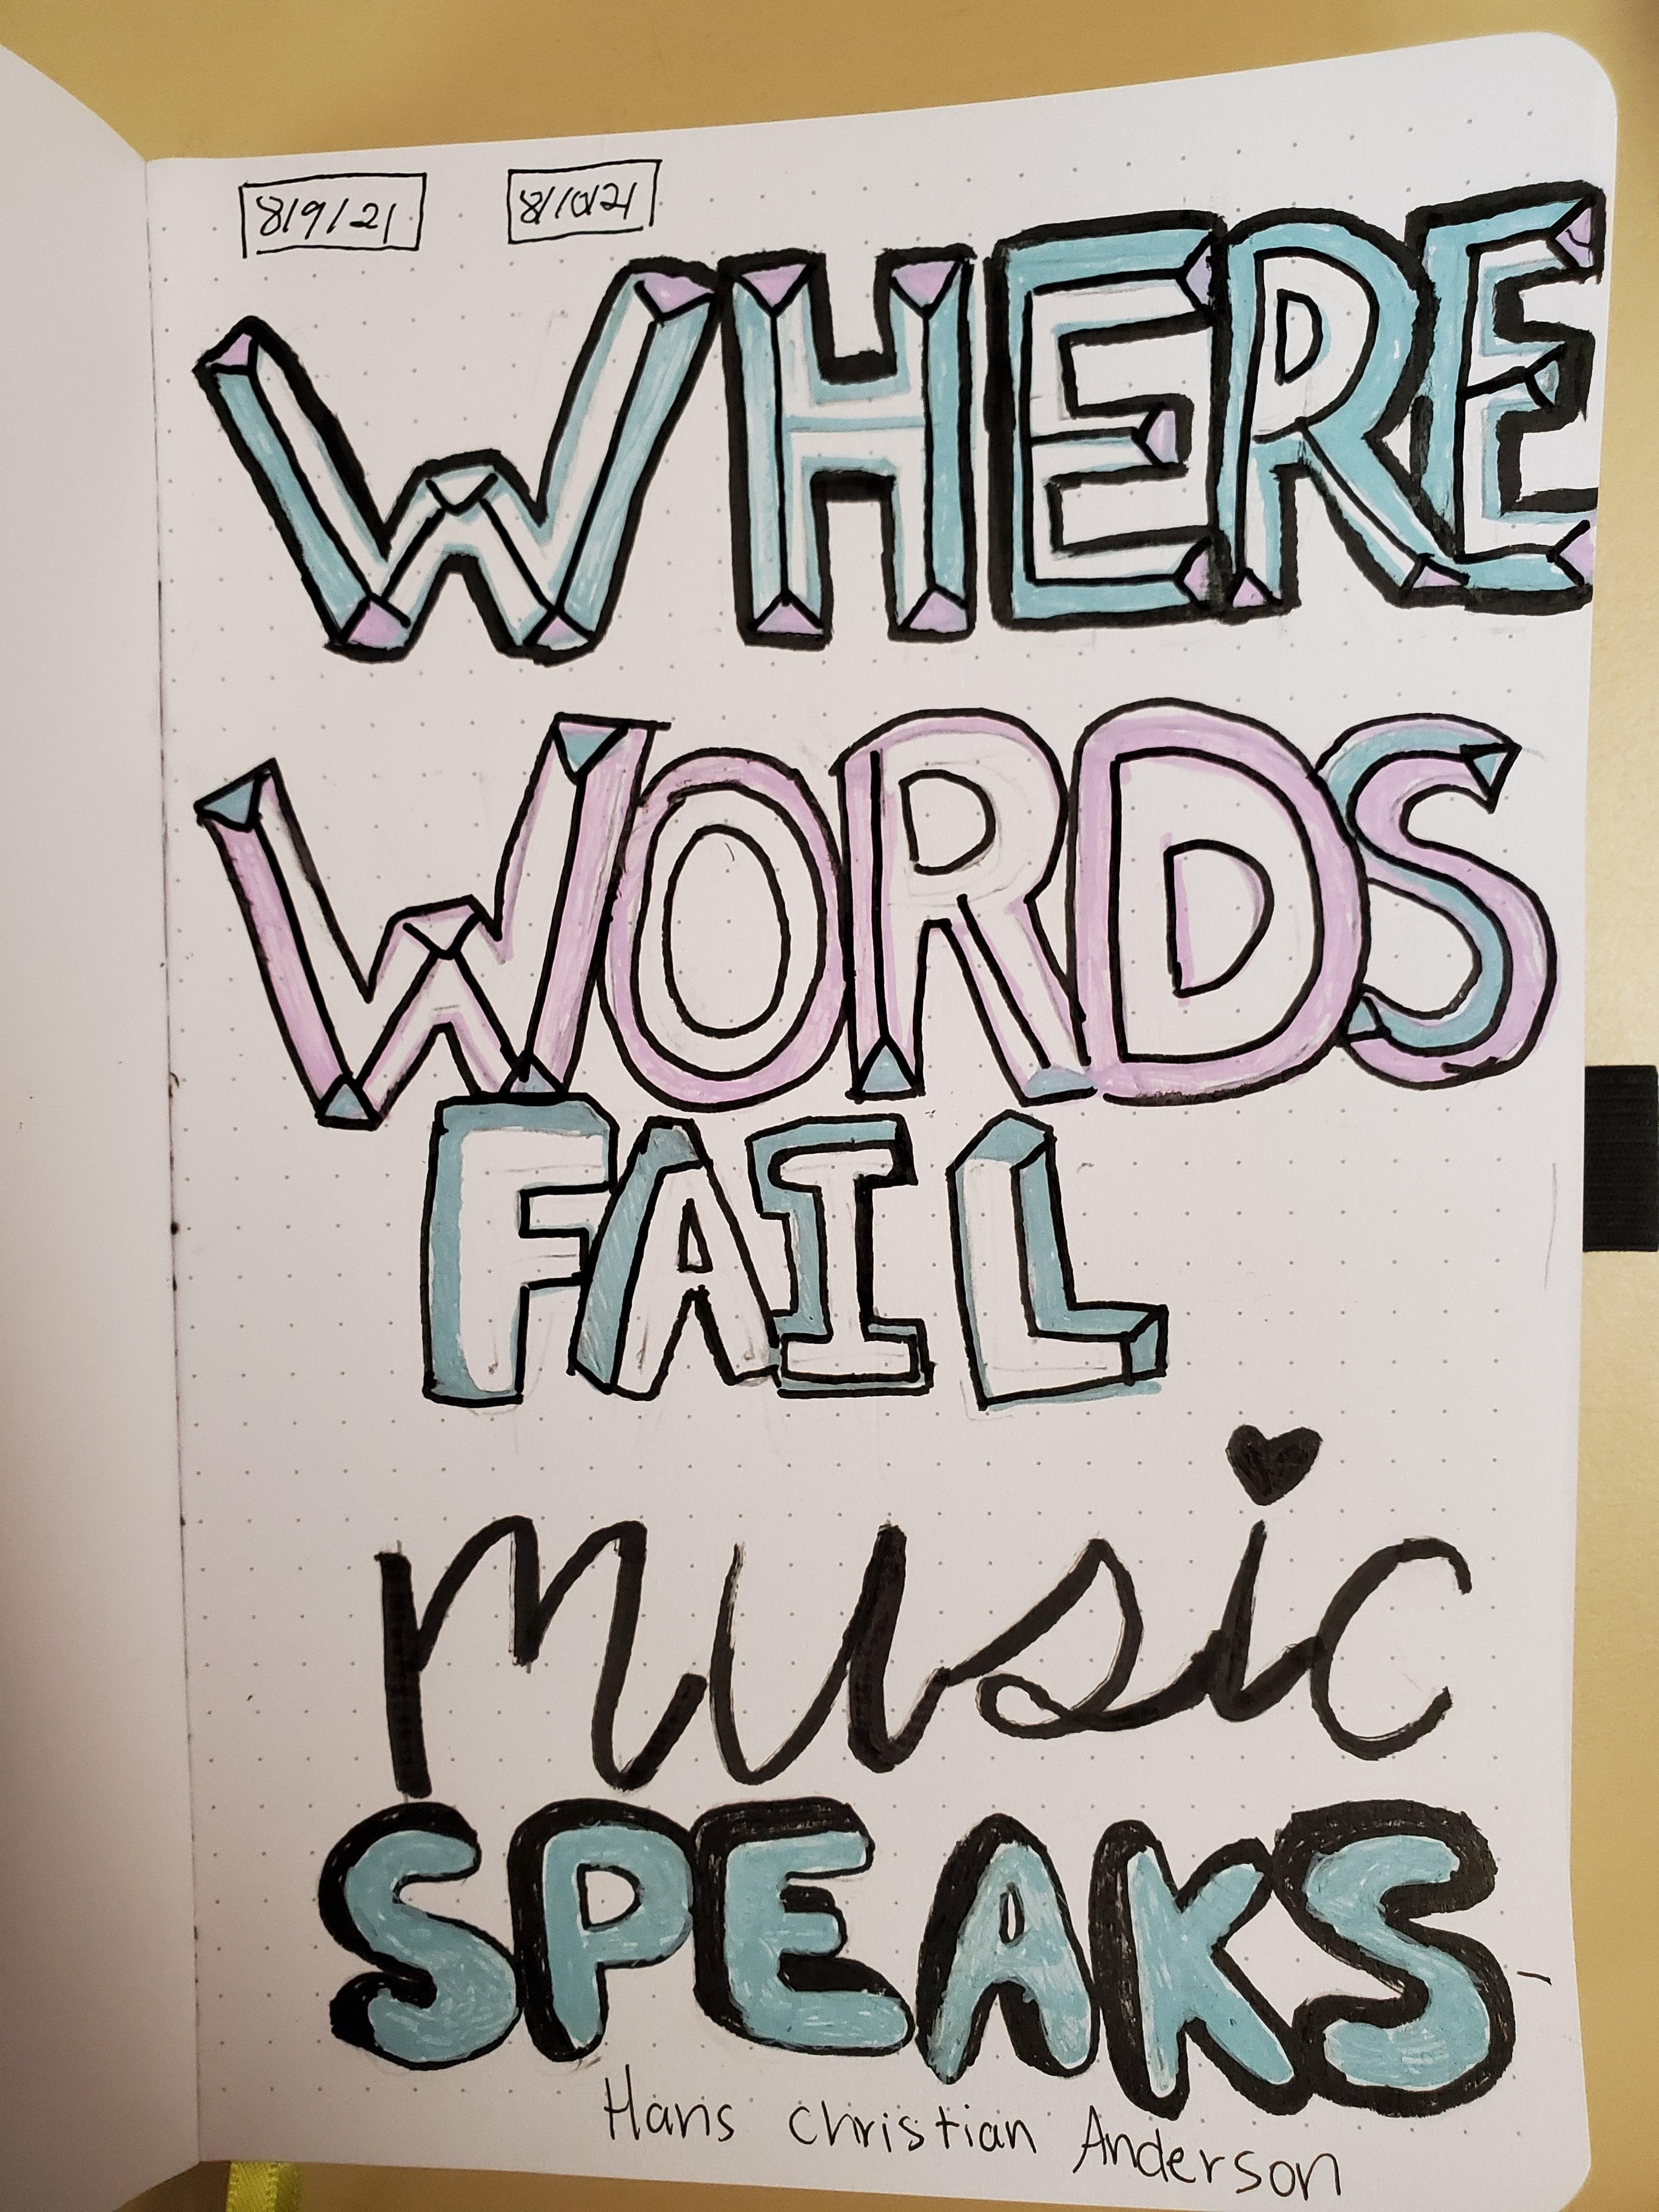 8/9/21 8/10/21
WHERE
WORDS
FAIL
music
SPEAKS
Hans Christian Anderson